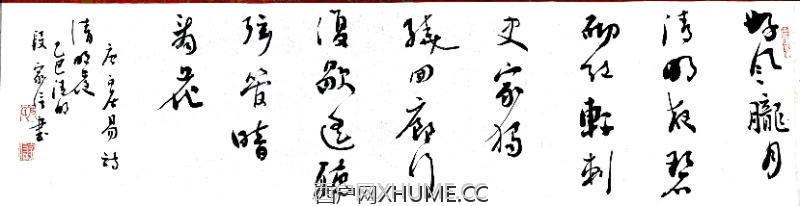 好风朧月
清明夜碧
砌红軒刺
史家独
繞回廊行
復歇遥聽
弦管暗
看花
唐白居易诗
清明夜
乙巳清明
段家信書
网XHUME.CC